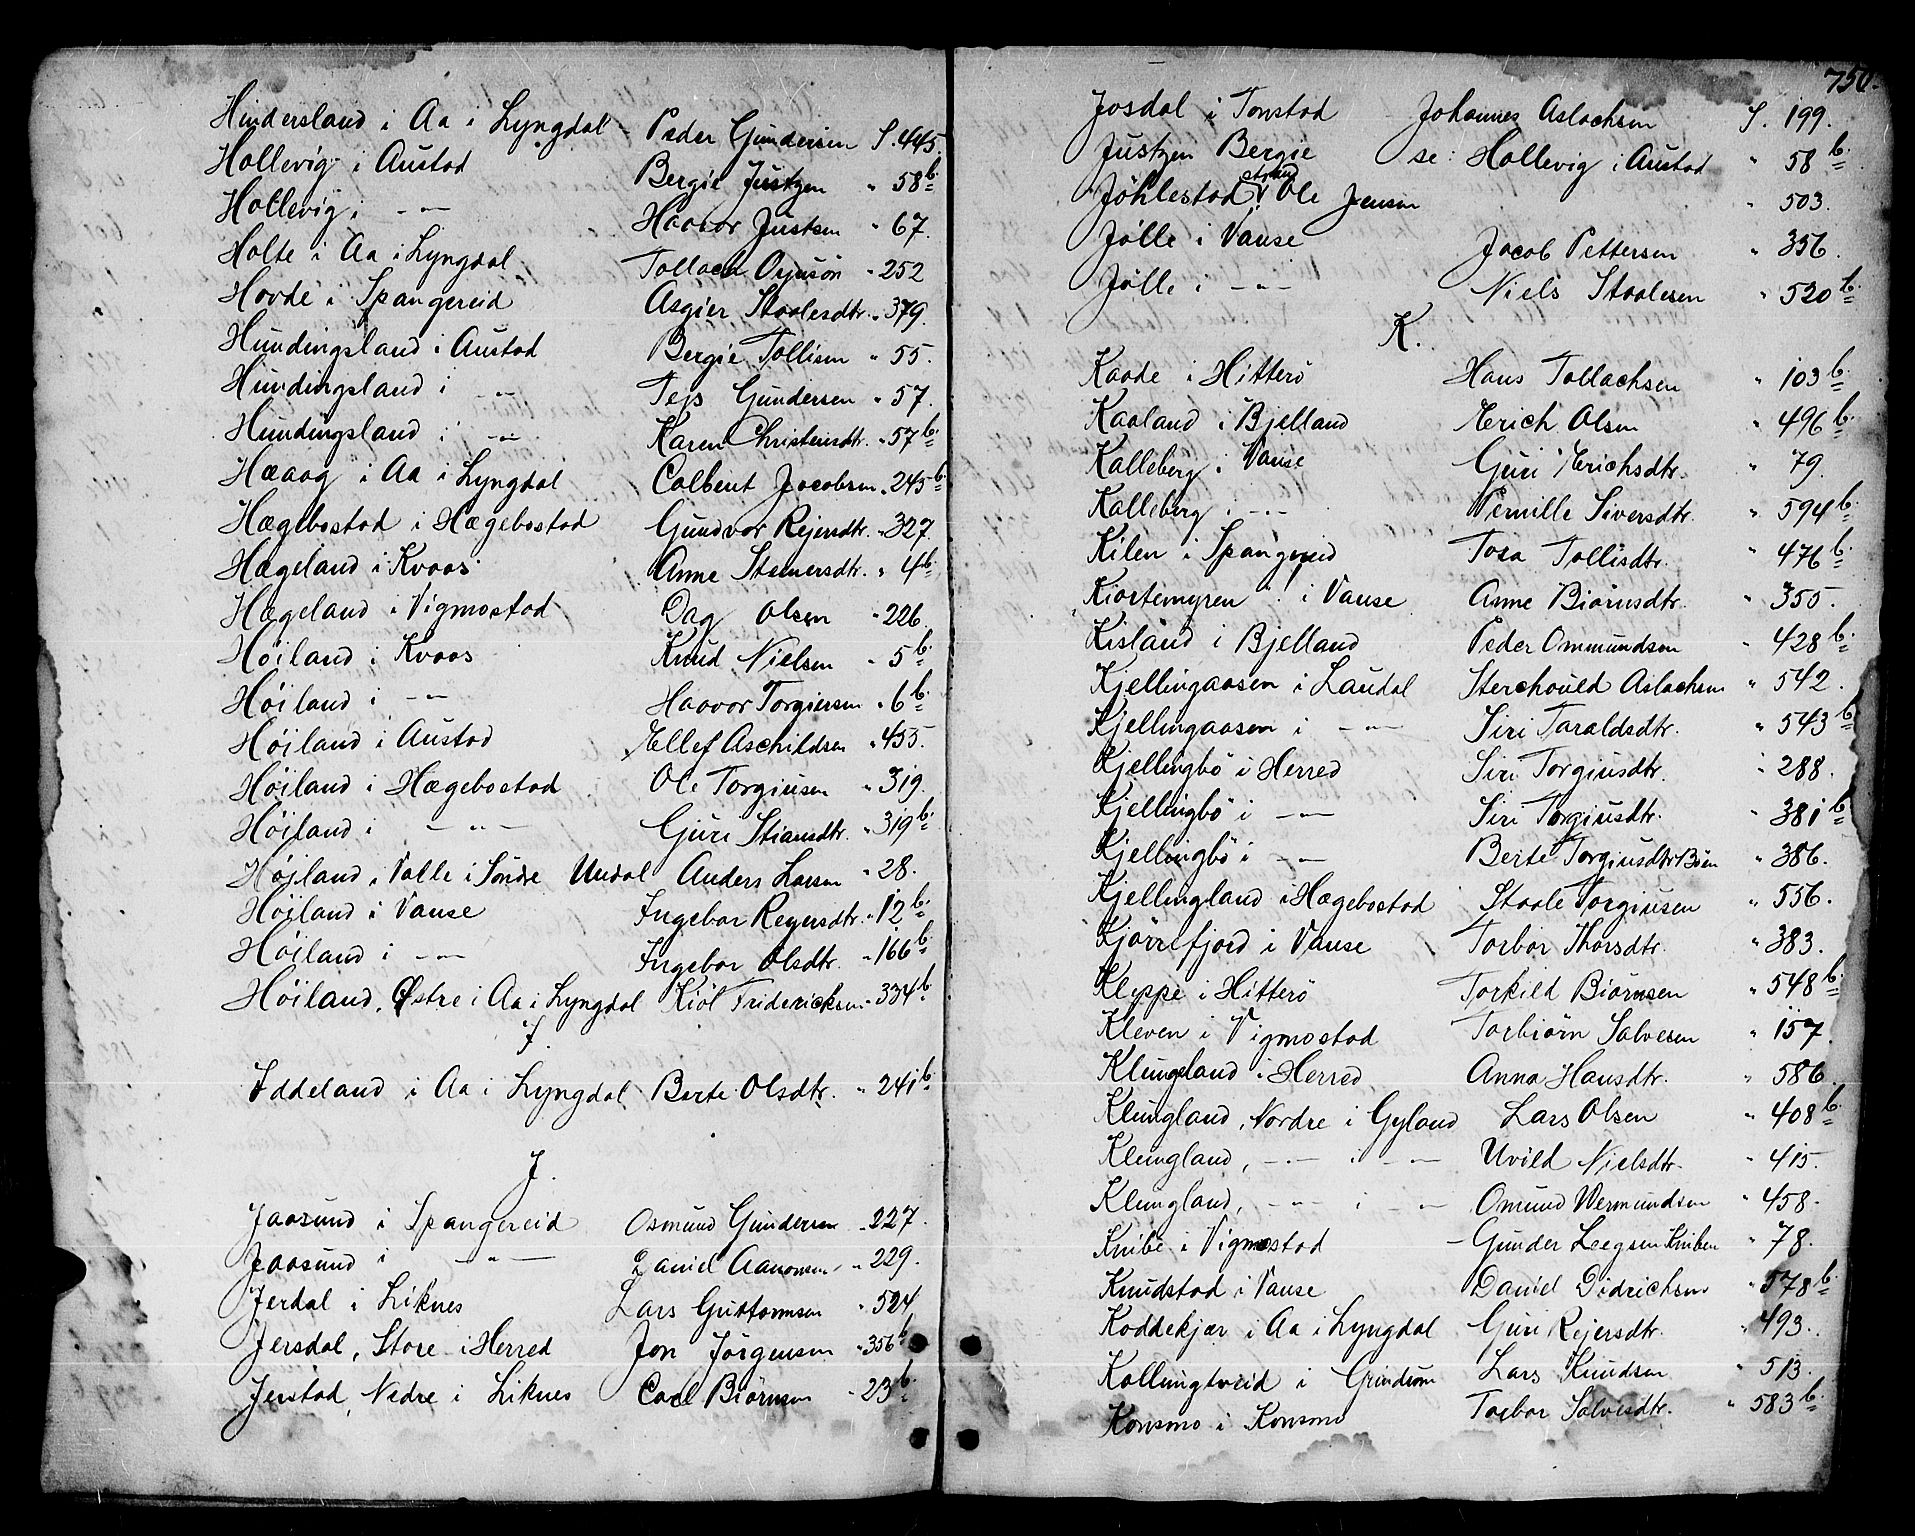 Hindersland i Aa i Lyngdal Peder Gundersen S. 445.
Hollevig i Austad Bergie Justzen " 58 b.
Hollevig i -"- Haavor Justsen " 67.
Holte i Aa i Lyngdal Tollach " 252
Hovde i Spangereid Asgier Staalesdtr. " 379.
Hundingsland i Austad Bergie Tollisen " 55.
Hundingsland i -"- Tejs Gundersen " 57.
Hundingsland i -"- Karen Christensdtr. " 57 b.
Hæaag i Aa i Lyngdal Colbent Jacobsen " 245 b.
Hægebostad i Hægebostad Gundvor Rejersdtr. " 327
Hægeland i Kvaas Anne Stenersdtr. " 4 b.
Hægeland i Vigmostad Dag Olsen " 226.
Höiland i Kvaas Knud Nielsen " 5 b.
Höiland i -"- Haavor Torgiersen " 6 b.
Höiland i Austad Ellef Aschildsen " 455.
Höiland i Hægebostad Ole Torgiusen " 319.
Höiland i -"- Guri Stiansdtr. " 319 b.
Höiland, Valle i Söndre Undal Anders Larsen " 28.
Höiland i Vanse Ingebor Reyersdtr. " 12 b.
Höiland i -"- Ingebor Olsdtr. " 166 b.
Höiland, Østre i Aa i Lyngdal Kiöl Fridericksen " 334 b.
I.
Iddeland i Aa i Lyngdal Berte Olsdtr. " 241 b.
J.
Jaasund i Spangereid Osmund Gundersen " 227.
Jaasund i -"- Daniel Aanonsen " 229.
Jerdal i Liknes Lars Guttormsen " 524
Jersdal, Store i Herred Jon Jörgensen " 356 b.
Jerstad, Nedre i Liknes Carl Biörnsen " 23 b.
750.
Josdal i Tonstad Johannes Aslachsen S. 199.
Justzen Bergie se: Hollevig i Austad " 58 b.
Jöhlestad strand Ole Jensen " 503.
Jölle i Vanse Jacob Pettersen " 356.
Jölle i -"- Niels Staalesen " 520 b.
K.
Kaade i Hitterö Hans Tollachsen " 103 b.
Kaaland i Bjelland Erich Olsen " 496 b.
Kalleberg i Vanse Guri Erichsdtr. " 79.
Kalleberg i -"- Pernille Siversdtr. " 594 b.
Kilen i Spangereid Tora Tollisdtr. " 476 b.
Kiortemyren i Vanse Anne Biörnsdtr. " 355.
Kisland i Bjelland Peder Ommundsen " 428 b.
Kjellingaasen i Laudal Sterchould Aslachsen " 542.
Kjellingaasen i -"- Siri Taraldsdtr. " 543 b.
Kjellingbö i Herred Siri Torgiusdtr. " 288.
Kjellingbö i -"- Siri Torgiusdtr. " 381 b.
Kjellingbö i -"- Berte Torgiusdtr Böen " 386.
Kjellingland i Hægebostad Staale Torgiusen " 556.
Kjörrefjord i Vanse Torbor Thorsdtr. " 383.
Kleppe i Hitterö Torkild Biörnsen " 548 b.
Kleven i Vigmostad Torbiörn Salvesen " 157.
Klungland i Herred Anna Hansdtr. " 586.
Klungland, Nordre i Gyland Lars Olsen " 408 b.
Klungland, -"- i -"- Uvild Nielsdtr. " 415.
Klungland, -"- i -"- Omund Wermundsen " 458.
Knibe i Vigmostad Gunder Leegsen Kniben " 78.
Knudstad i Vanse David Didrichsen " 578 b.
Koddekjær i Aa i Lyngdal Guri Rejersdtr. " 493.
Kollungtveid i Grindum Lars Knudsen " 513.
Konsmo i Konsmo Torbor Salvesdtr. " 583 b.